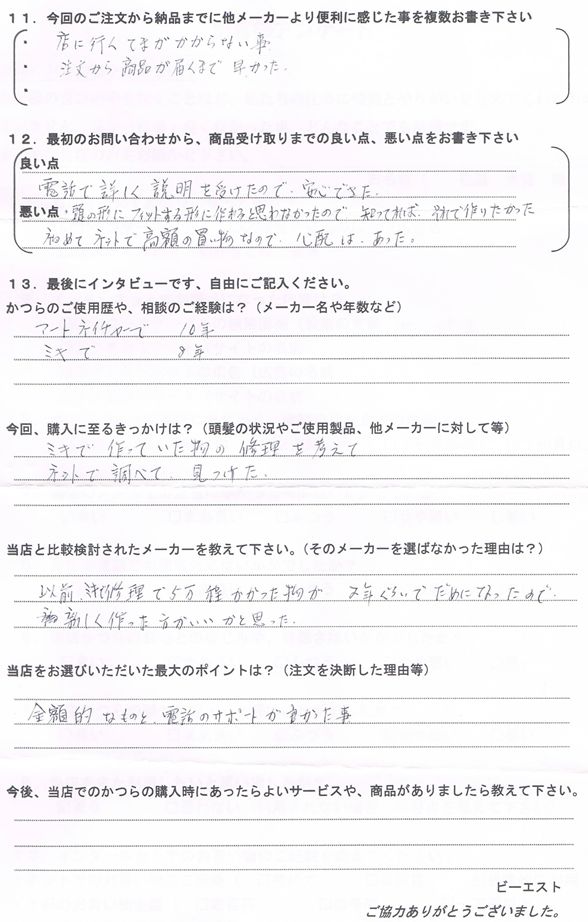 １１．今回のご注文から納品までに他メーカーより便利に感じた事を複数お書き下さい
・ 店に行くてまがかからない事
・ 注文から商品が届くまで早かった.
・
１２．最初のお問い合わせから、商品受け取りまでの良い点、悪い点をお書き下さい
良い点
電話で詳しく説明を受けたので、安心できた.
悪い点・頭の形にフィットする形に作れると思わなかったので 知ってれば、それで作りたかった
初めてネットで高額の買い物なので、心配は、あった。
１３．最後にインタビューです、自由にご記入ください。
かつらのご使用歴や、相談のご経験は？（メーカー名や年数など）
アートネイチャーで 10年
ミキで 8年
今回、購入に至るきっかけは？（頭髪の状況やご使用製品、他メーカーに対して等）
ミキで作っていた物の修理を考えて
ネットで調べて、見つけた.
当店と比較検討されたメーカーを教えて下さい。（そのメーカーを選ばなかった理由は？）
以前 修理で5万程かかった物が 2年ぐらいでだめになったので、
新しく作った方がいいかと思った.
当店をお選びいただいた最大のポイントは？（注文を決断した理由等）
金額的なものと、電話のサポートが良かった事
今後、当店でのかつらの購入時にあったらよいサービスや、商品がありましたら教えて下さい。
ビーエスト
ご協力ありがとうございました。